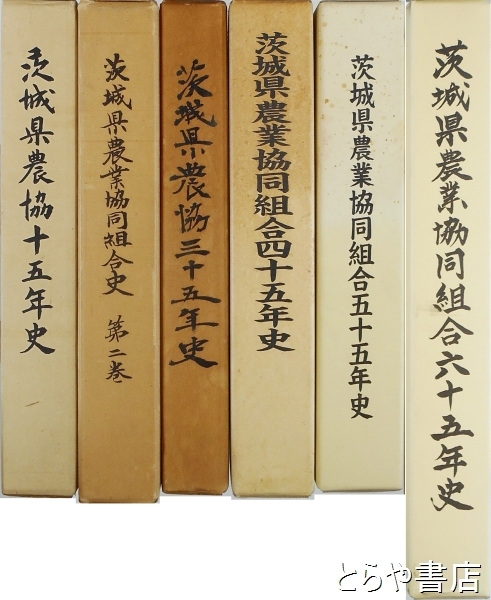 茨城県農協十五年史
茨城県農業協同組合史 第二巻
茨城県農協三十五年史
茨城県農業協同組合四十五年史
茨城県農業協同組合五十五年史
茨城県農業協同組合六十五年史
とらや書店